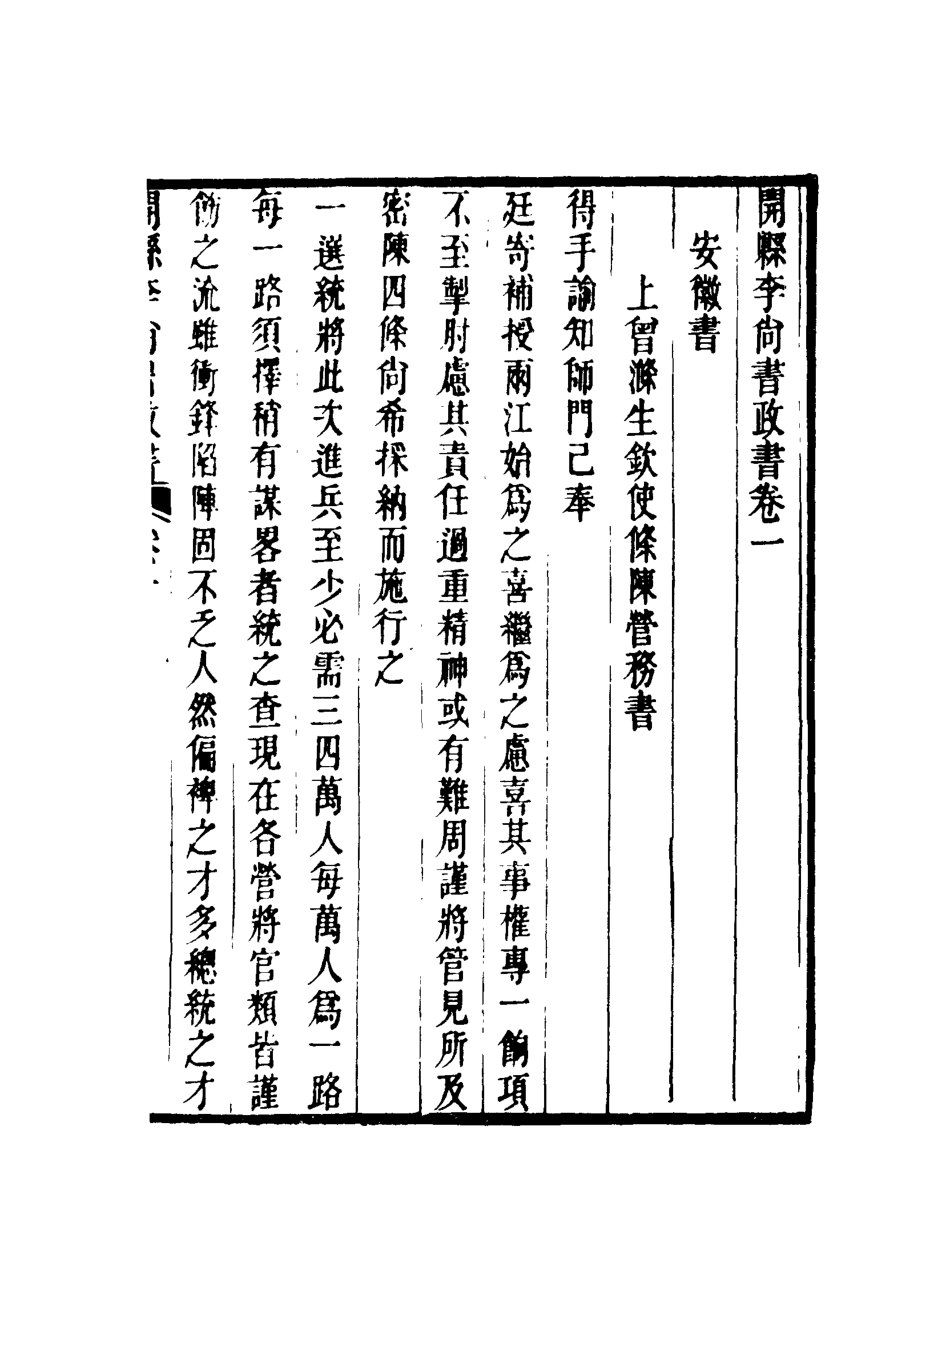 開縣李尚書政書卷一
安徽書
上曾滌生欽使條陳營務書
得手諭知師門已奉
廷寄補授兩江始爲之喜繼爲之慮喜其事權專一餉項
不至掣肘慮其責任過重精神或有難周謹將管見所及
密陳四條尚希採納而施行之
一選統將此次進兵至少必需三四萬人每萬人爲一路
每一路須擇稍有謀畧者統之查現在各營將官類皆謹
飭之流雖衝鋒陷陣固不乏人然偏裨之才多總統之才
開縣李尚書政書 卷一